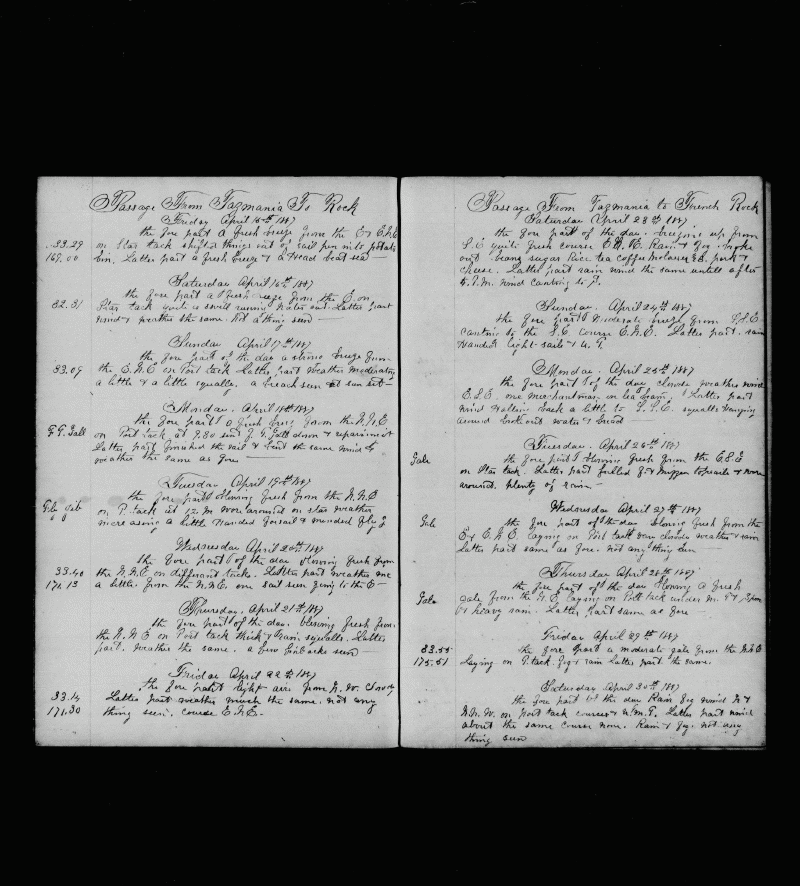 Passage From Tazmania To Rock
Friday April 15th 1887
the fore part a fresh breeze from the E & E.N.E
33.29 on Star tack shifted things out of sail pen into potato
169.00 bin. Latter part a fresh breeze & a Head beat sea
Saturday April 16th 1887
the fore part a fresh breeze from the E. on
32.31 Star tack with a swell running Latter part
wind & weather the same. Not a thing seen
Sunday April 17th 1887
the fore part of the day a strong breeze from
33.09 the E.N.E on Port tack Latter part weather moderating
a little & a little squally. a breach seen at sun set
Monday. April 18th 1887
the fore part a fresh breeze from the N.N.E
F.G. Sall on Port tack at 9.30 sent F. G. Sall down & repaired it
Latter part finished the sail & bent the same wind &
weather the same as fore
Tuesday April 19th 1887
the fore part blowing fresh from the N.N.E
Fly gib on P. tack at 12 M wore around on star weather
increasing a little Handed Forsail & mended fly J
Wednesday April 20th 1887
the fore part of the day blowing fresh from
33.40 the N.N.E on different tacks. Latter part weather
171.13 a little from the N.N.E. one sail seen going to the E
Thursday, April 21st 1887
the fore part of the day. blowing fresh from
the N.N.E on Port tack thick & rain squalls. Latter
part. weather the same. a few finbacks seen
Friday April 22th 1887
the fore part light airs from N.W. cloudy
33.14 Latter part weather much the same. not any
171.30 thing seen. course E.N.E.
Passage From Tazmania to French Rock
Saturday April 23th 1887
the fore part of the day. breezing up from
S.E quite fresh course Rain & fog. broke
out beans sugar Rice tea coffee molasses pork &
cheese. Latter part rain wind the same untill after
5. P.M. wind canting to
Sunday. April 24th 1887
the fore part Moderate breeze from S.S.E
canting to the S.E course E.N.E. Latter part. rain
Handed light sails
Monday. April 25th 1887
the fore part of the day cloudy weather wind
E.S.E. one merchantman on lea beam. Latter part
wind Halling back a little to S.S.E. squalls hanging
around Broke out water & bread
Tuesday. April 26th 1887
Gale the fore part blowing fresh from the E.S.E
on Star tack. Latter part furled & Mizzen topsails & wore
around. plenty of rain
Wednesday April 27th 1887
Gale the fore part of the day blowing fresh from the
E & E.N.E. Laying on Port tack very cloudy weather & rain
Latter part same as fore. not any thing seen
Thursday April 28th 1887
the fore part of the day blowing a fresh
Gale gale from the N.E. Laying on Port tack under M. T &
& heavy rain. Latter part same as fore
Friday April 29th 1887
33.55 the fore part a moderate gale from the N.N.E
175.51 Laying on P. tack. fog & rain Latter part the same.
Saturday April 30th 1887
the fore part of the day Rain fog wind N &
N.N.W. on port tack course Latter part wind
about the same course none. Rain & fog. not any
thing seen